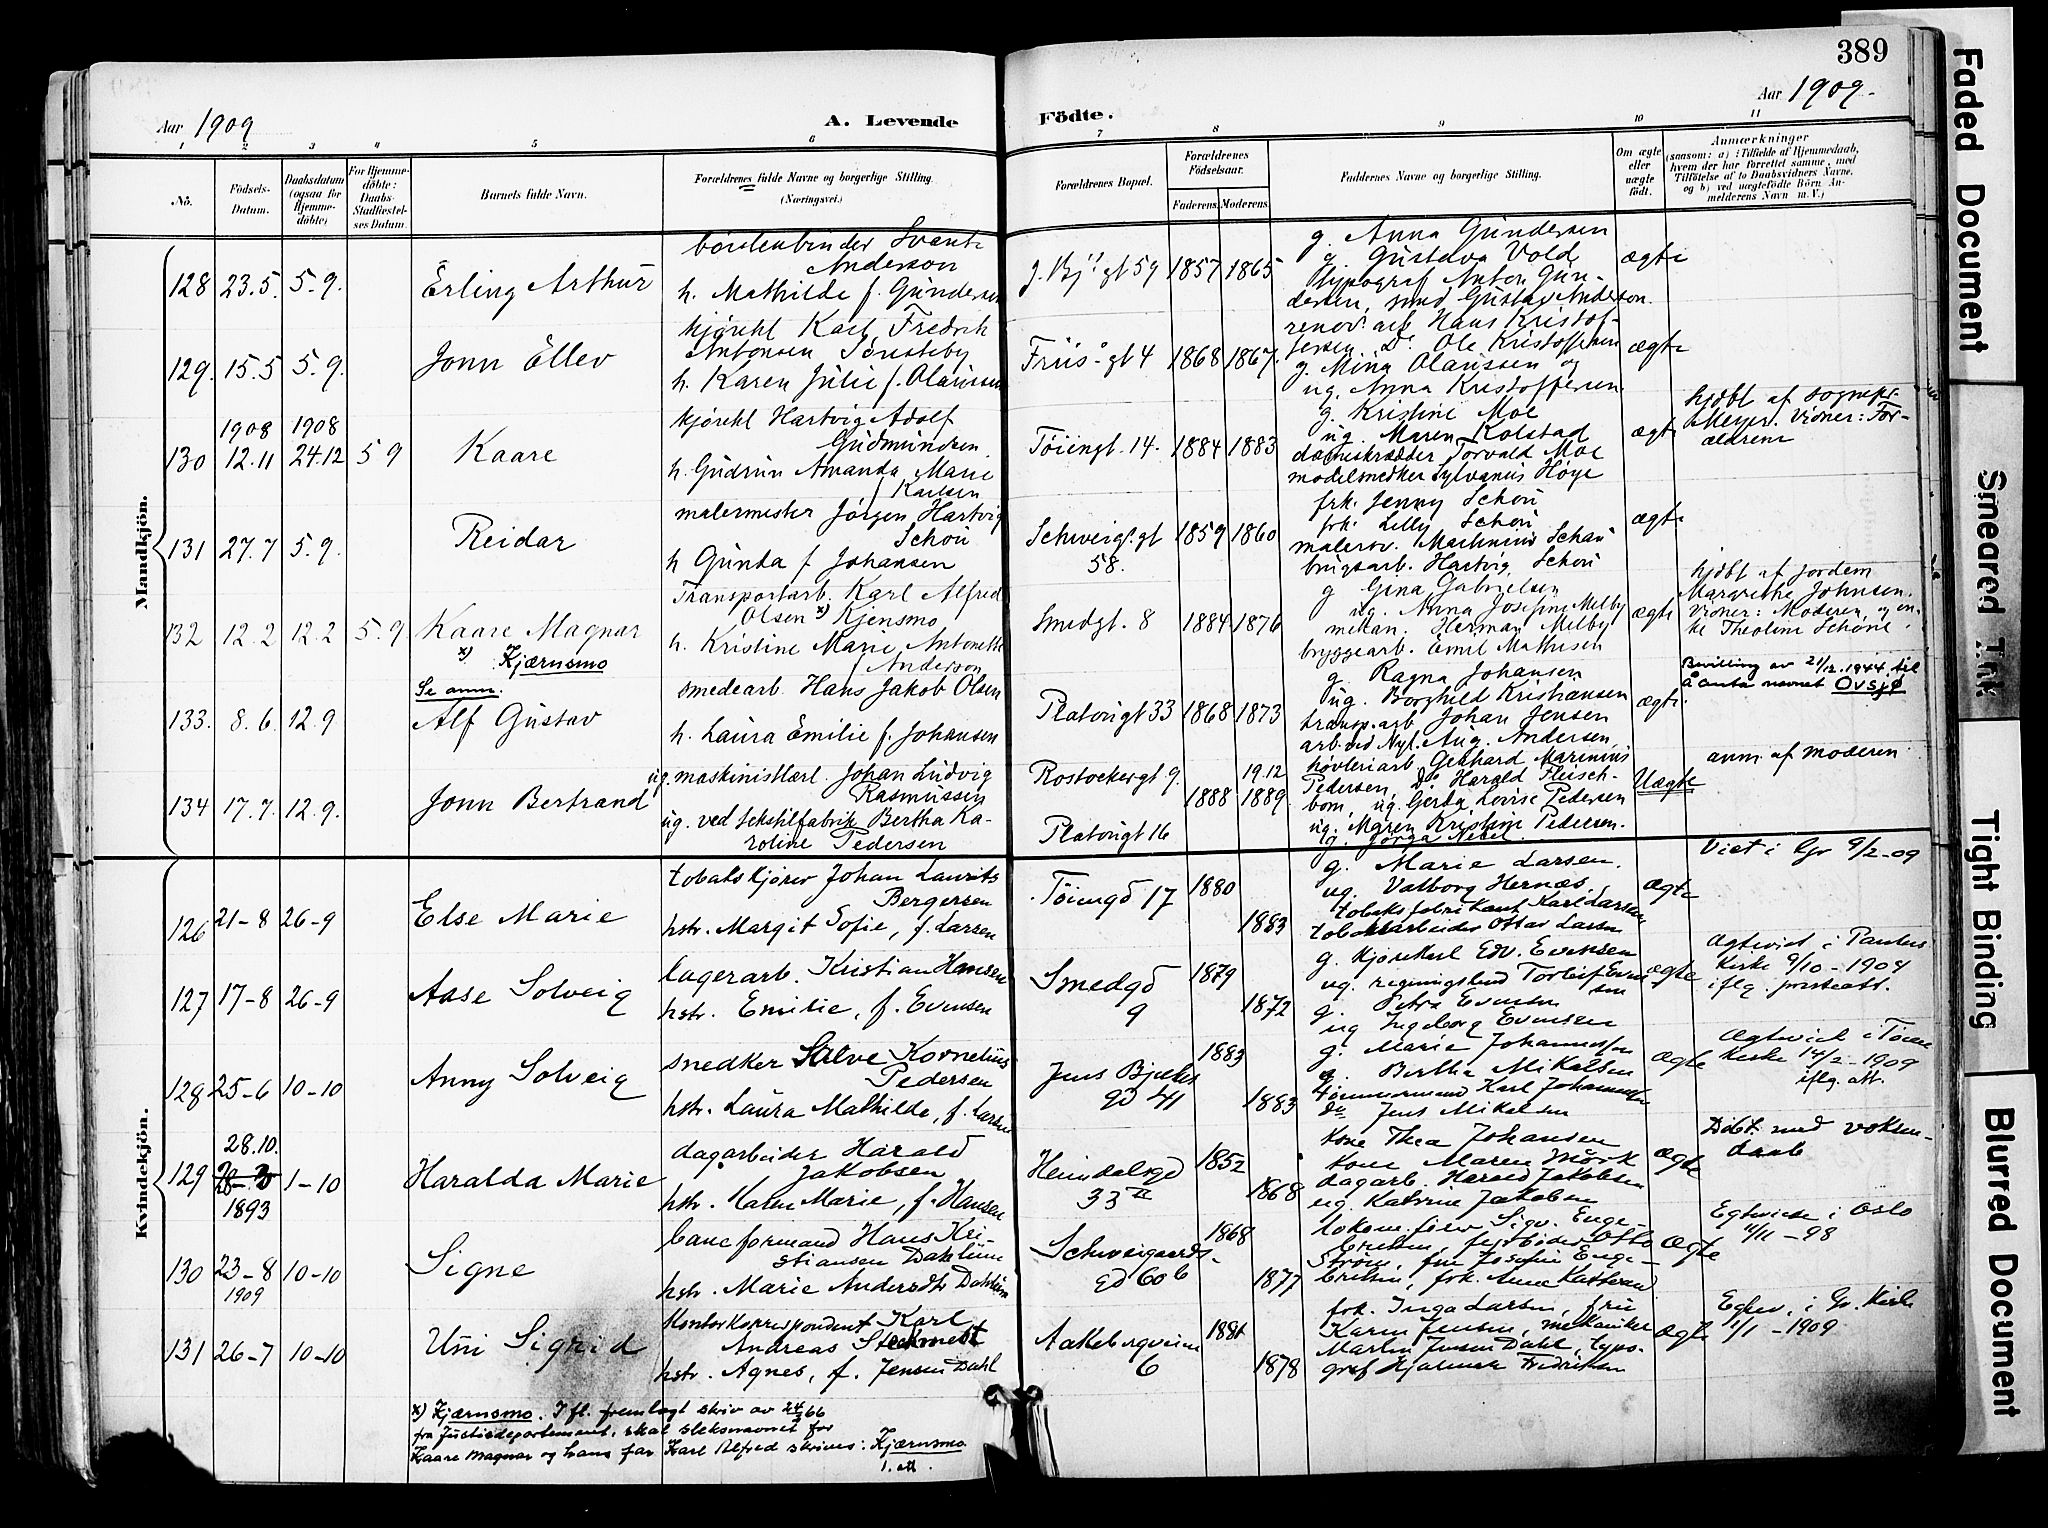 389
Aar 1909
A. Levende
Födte.
Aar 1909.
1 2 3 4 5 6 7 8 9 10 11
No.
Födsels-Datum.
Daabsdatum (ogsaa for Hjemmedöbte)
For Hjemmedöbte: Daabs-Stadfæstelses Datum.
Barnets fulde Navn.
Forældrenes fulde Navne og borgerlige Stilling. (Næringsvei.)
Forældrenes Bopæl.
Forældrenes Födselsaar.
Faderens. Moderens.
Faddernes Navne og borgerlig Stilling.
Om ægte eller uægte födt.
Anmærkninger
(saasom: a) i Tilfælde af Hjemmedaab, hvem der har forrettet samme, med Tilföielse af to Daabsvidners Navne, og b) ved uægtefödte Börn Anmelderens Navn m. V.)
Mandkjön.
128 23.5. 5.9. Erling Arthur
børstenbinder Svante
Anderson
h. Mathilde f. Gundersen
1857 1865
g. Anna Gundersen
g. Gustava Vold
typograf Anton Gun-
dersen, smed Gustav Anderson
ægte
129. 15.5 5.9. Jonn Ellev
kjørekl Karl Fredrik
Antonsen Tønsteby
h. Karen Julie f. Olaussen
Friis' gt 4 1868 1867.
renov. arb. Hans Kristof-
fersen, Do Ole Kristoffersen
g. Mina Olaussen og
ug. Anna Kristoffersen
ægte
1908 1908
130 12.11 24.12 5 9 Kaare
kjørekl Hartvig Adolf
Gudmundsen
h. Gudrun Amanda Marie
f Karlsen
Tøiengt. 14. 1884 1883
g. Kristine Moe
ug. Maren Kolstad
dameskrædder Torvald Moe
modelsnedker Sylvanus Høye
ægte
hjdbt af sognepr.
Meyer. Vidner: For-
ældrene
131 27.7 5.9. Reidar
malermester Jørgen Hartvig
Schou
h Gunda f Johansen
Schweigs. gt
58. 1859 1860
frk. Jenny Schou
frk. Lilly Schou
malersv. Martinius Schou
brugsarb. Hartvig Schou
ægte
132 12.2 12.2 5.9 Kaare Magnar
x) Kjærnsmo
Transportarb. Karl Alfred
Olsen x) Kjensmo
h. Kristine Marie Antonette
f Anderson
Smedgt. 8 1884 1876
g Gina Gabrielsen
ug. Anna Josefine Melby
mekan. Herman Melby
bryggearb. Emil Mathisen
ægte
hjdbt af jordem
Margrethe Johnsen.
Vidner: Moderen, og en-
ke Theoline Schøne.
Se anm.
133. 8.6. 12.9 Alf Gustav
smedearb. Hans Jakob Olsen
h. Laura Emilie f. Johansen
Platougt 33 1868 1873
g. Ragna Johansen
ug. Borghild Kristiansen
transp.arb Johan Jensen
arb. ved Nyl. Aug. Andersen
ægte.
Bevilling av 21/2.1944 til
å anta navnet Øvsjø
134 17.7. 12.9. Jonn Bertrand
ug. maskinistlærl. Johan Ludvig
Rasmussen
ug. ved tekstilfabrik Bertha Ka-
roline Pedersen
Rostockergt 9.
Platougt 16
1888
19.12
1889
høvleriarb Gebhard Marinius
Pedersen, Do Harald Fleisch-
bom, ug. Gerda Lovise Pedersen
ug. Maren Kristine Pedersen.
Uægte
anm af moderen
Kvindekjön.
126 21-8 26-9 Else Marie
tobakskjører Johan Laurits
Bergersen
hstr. Margit Sofie, f. Larsen
Tøiengd 17 1880
1883
g. Marie Larsen.
ug. Valborg Hernæs.
tobaksfabrikant Karl Larsen
tobaksarbeider Ottar Larsen
ægte
Viet i Gr 9/2-09
127 17-8 26-9 Aase Solveig
lagerarb. Kristian Hansen
hstr. Emilie, f. Evensen
Smedgd
9 1879
1872
g. kjørekarl Edv. Evensen
ug. regningsbud Torleif Even
sen
g. Petra Evensen
ug Ingeborg Evensen
ægte
Ægteviet i Paulus
Kirke 9/10-1904
iflg. presteatt.
128 25-6 10-10 Anny Solveig
snedker Salve Kornelius
Pedersen
hstr. Laura Mathilde, f. Larsen
Jens Bjelkes
gd 41 1883
1883
g. Marie Johannessen
g. Bertha Mikalsen
tømmermand Karl Johannessen
do Jens Mikalsen
ægte
Ægteviet i Tøien
Kirke 14/2-1909
iflg. att.
28.10.
129 1-10 Haralda Marie
1893
dagarbeider Harald
Jakobsen
hstr. Karen Marie, f. Hansen
Heimdalsgd
33 II 1852
1868
kone Thea Johansen
kone Maren Mørk
dagarb. Harald Jakobsen
ug. Katrine Jakobsen
ægte
Døbt med voksen-
daab
130 23-8 10-10 Signe
1909
baneformand Hans Kri-
stiansen Dahluin
hstr. Marie Andersdtr Dahluin
Schweigaards-
gd 60 b 1868
1877
ægte
Egteviede i Oslo
11/11-98
131 26-7 10-10 Uni Sigrid
Kontorkorrespondent Karl
Andreas
hstr. Agnes, f. Jensen Dahl
Aakebergveien
6 1881
1878
frk. Inga Larsen, fru
Karen Jensen, mekaniker
Martin Jensen Dahl, typo-
graf Hjalmar Fredriksen
ægte
Egtev. i Gr. Kirke
1/1-1909
x) Kjærnsmo. Ifl. fremlagt skriv av
fra Justisdepartement. skal slektsnavnet for
Kaare Magnar og hans far Karl Alfred skrives: Kjærnsmo
1. att.
Faded Document
Smeared Ink
Tight Binding
Blurred Document